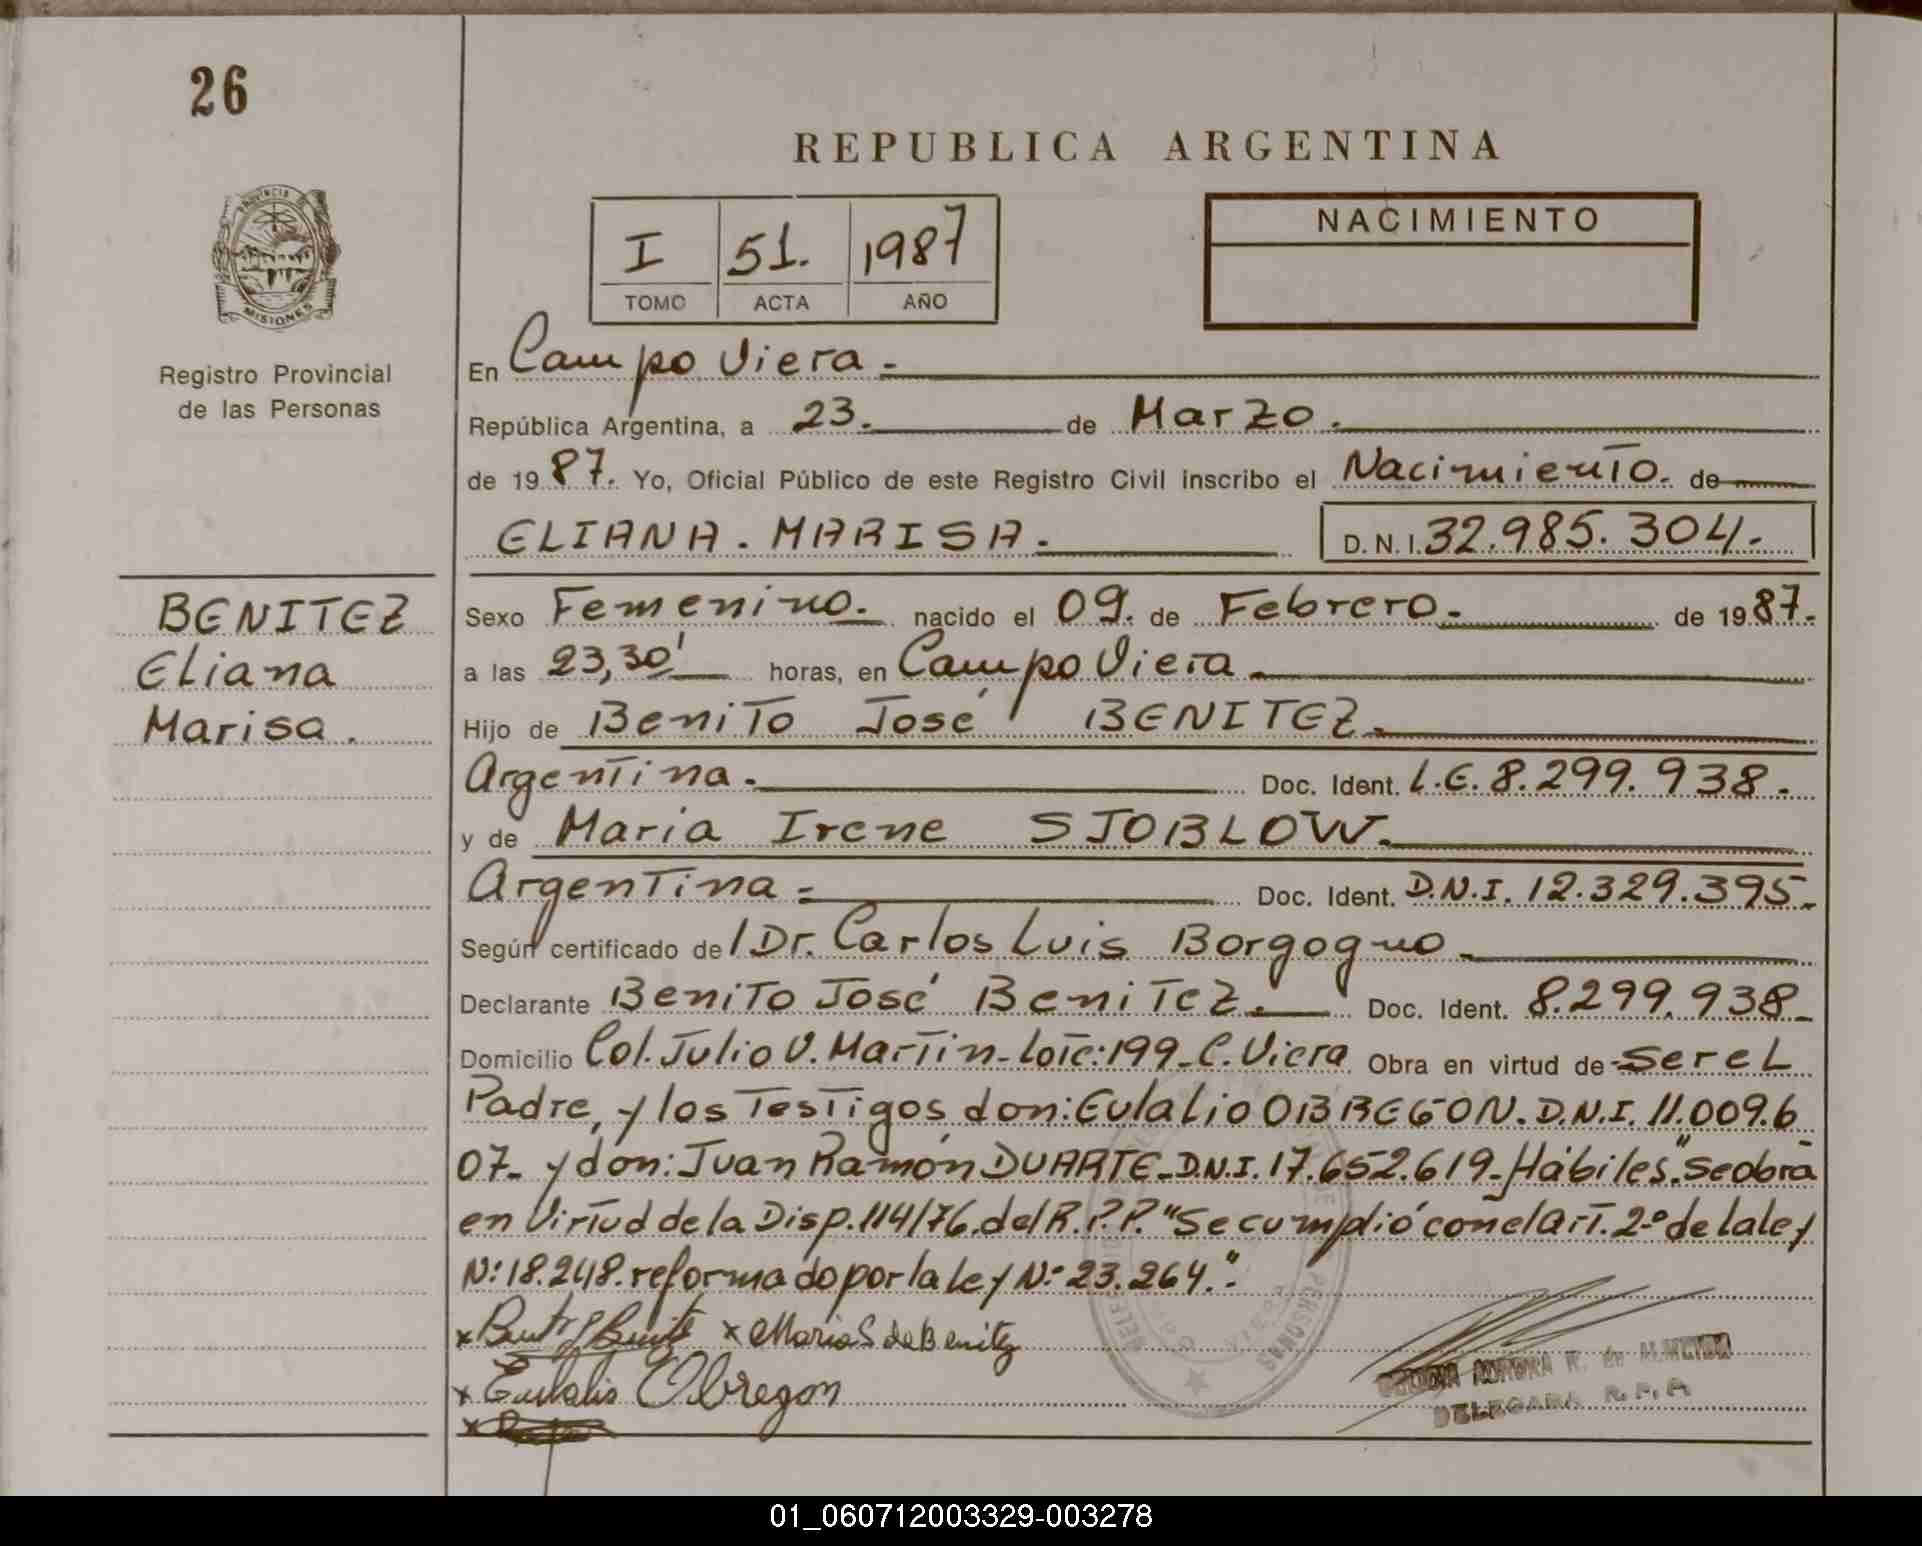 26
REPUBLICA ARGENTINA
PROVINCIA DE
MISIONES
Registro Provincial
de las Personas
I 51. 1987
TOMO ACTA AÑO
NACIMIENTO
En Campo Viera -
República Argentina, a 23. de Marzo.
de 1987. Yo, Oficial Público de este Registro Civil inscribo el Nacimiento. de
ELIANA. MARISA. D. N. I. 32.985.304.-
BENITEZ
Eliana
Marisa.
Sexo Femenino. nacido el 09. de Febrero. de 1987.-
a las 23,30' horas, en Campo Viera
Hijo de Benito José BENITEZ.
Argentina. Doc. Ident. L.E. 8.299.938.-
y de Maria Irene SJOBLOW.
Argentina.- Doc. Ident. D.N.I. 12.329.395.-
Según certificado del Dr. Carlos Luis Borgogno
Declarante Benito José Benitez. Doc. Ident. 8.299.938-
Domicilio Col. Julio U. Martin-lote:199-C.Viera Obra en virtud de -ser el
Padre, y los Testigos, don: Eulalio OBREGON. D.N.I. 11.009.6
07- y don: Juan Ramón DUARTE-D.N.I. 17.652.619-Hábiles."se obra
en Virtud de la Disp. 114/76. del R.P.P. "Se cumplió con el art. 2º de la ley
Nº 18.248. reformado por la ley Nº 23.264.".
x Benito J Benitez x Maria S de Benitez
x Eulalio Obregon
AURORA R. de ALMEIDA
DELEGADA R.P.P.
01_060712003329-003278